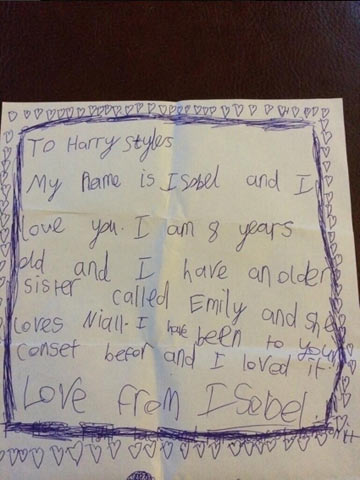 To Harry styles
My Name is ISobel and I
love you. I am 8 years
old and I have an older
sister called Emily and she
loves Niall. I have been to your
conset befor and I loved it!
Love from ISobel.